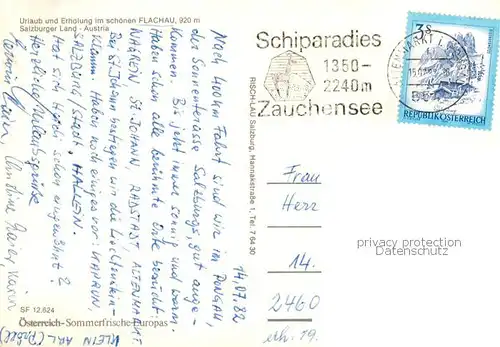 Urlaub und Erholung im schönen FLACHAU, 920 m
Salzburger Land - Austria
14.07.82
Nach 400 km Fahrt sind wir im PONGAU,
der Sonnenterasse Salzburgs, gut ange-
kommen. Bis jetzt immer sonnig und warm.
Haben schon alle berühmte Orte besucht:
WAGREIN, ST. JOHANN, RADSTADT, ALTENMARKT.
Bei St. Johann die Liechtenstein-
klamm. Haben noch einiges vor: KAPRUN,
SALZBURG (Stadt), HALLEIN.
Hat sich Heidi schon eingewöhnt?
Herzliche Urlaubsgrüße
KLEIN ARL
SF 12.624
Österreich-Sommerfrische Europas
RISCH-LAU Salzburg, Hannakstraße 1, Tel. 7 64 30
Schiparadies
1350-
2240m
Zauchensee
3 S
REPUBLIK ÖSTERREICH
Frau
Herr
14.
2460
erh. 19.
privacy protection
Datenschutz